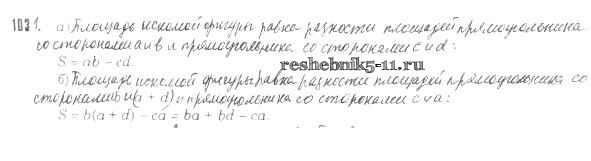 1031. а) Площадь искомой фигуры равна разности площадей прямоугольника
со сторонами a и b и прямоугольника со сторонами c и d:
S = ab – cd.
б) Площадь искомой фигуры равна разности площадей прямоугольника со
сторонами b и (a + d) и прямоугольника со сторонами c и a:
S = b(a + d) – ca = ba + bd – ca.
reshebnik5-11.ru